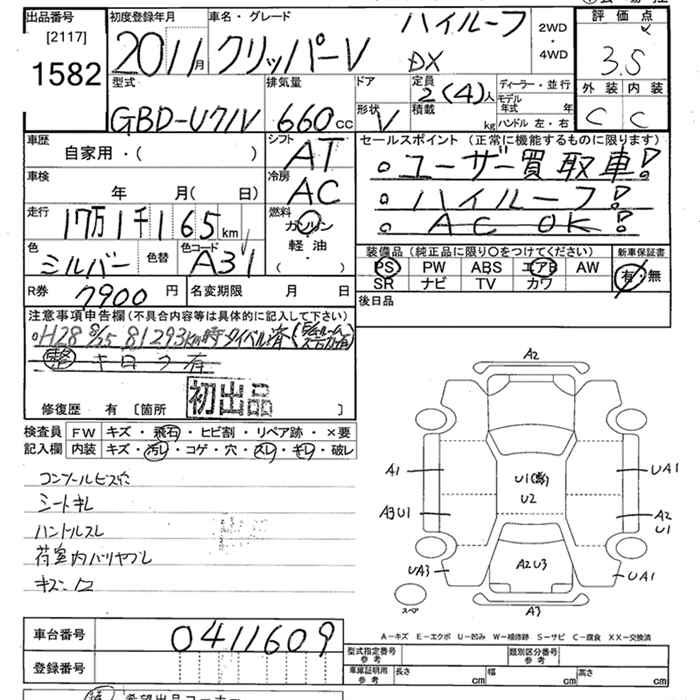 出品番号
[2117]
1582
初度登録年月
2011月
車名・グレード
クリッパーV
ハイルーフ
DX
2WD
・
4WD
評価点
3.5
外装 内装
C C
型式
GBD-U71V
排気量
660cc
ドア
形状
V
定員
2(4)人
積載
kg
ディーラー・並行
モデル年式 年
ハンドル 左・右
車歴
自家用・( )
車検
年 月( 日)
走行
17万1千165km
色
シルバー
色替
色コード
A31
シフト
AT
冷房
AC
燃料
ガソリン
軽油・
( )
セールスポイント (正常に機能するものに限ります)
。ユーザー買取車!
。ハイルーフ!
。AC OK!
装備品(純正品に限り〇をつけてください)
PS PW ABS エアB AW
SR ナビ TV カワ
新車保証書
有・無
後日品
R券
7900円
名変期限 月 日
注意事項申告欄(不具合内容等は具体的に記入して下さい)
初出品
修復歴 有 [箇所 ]
検査員
記入欄
FW キズ・飛石・ヒビ割・リペア跡・×要
内装 キズ・汚レ・コゲ・穴・スレ・キレ・破レ
コンソールビス穴
シートキレ
ハンドルスレ
荷室内バリヤブレ
A2
A1
A3U1
UA3
U2
A2U3
UA1
A2
U1
UA1
A3
スペア
A-キズ E-エクボ U-凹み W-補修跡 S-サビ C-腐食 XX-交換済
車台番号
0411609
登録番号
型式指定番号
参考
類別区分番号
参考
車庫証明用
参考
長さ cm 幅 cm 高さ cm
希望出品コーナー